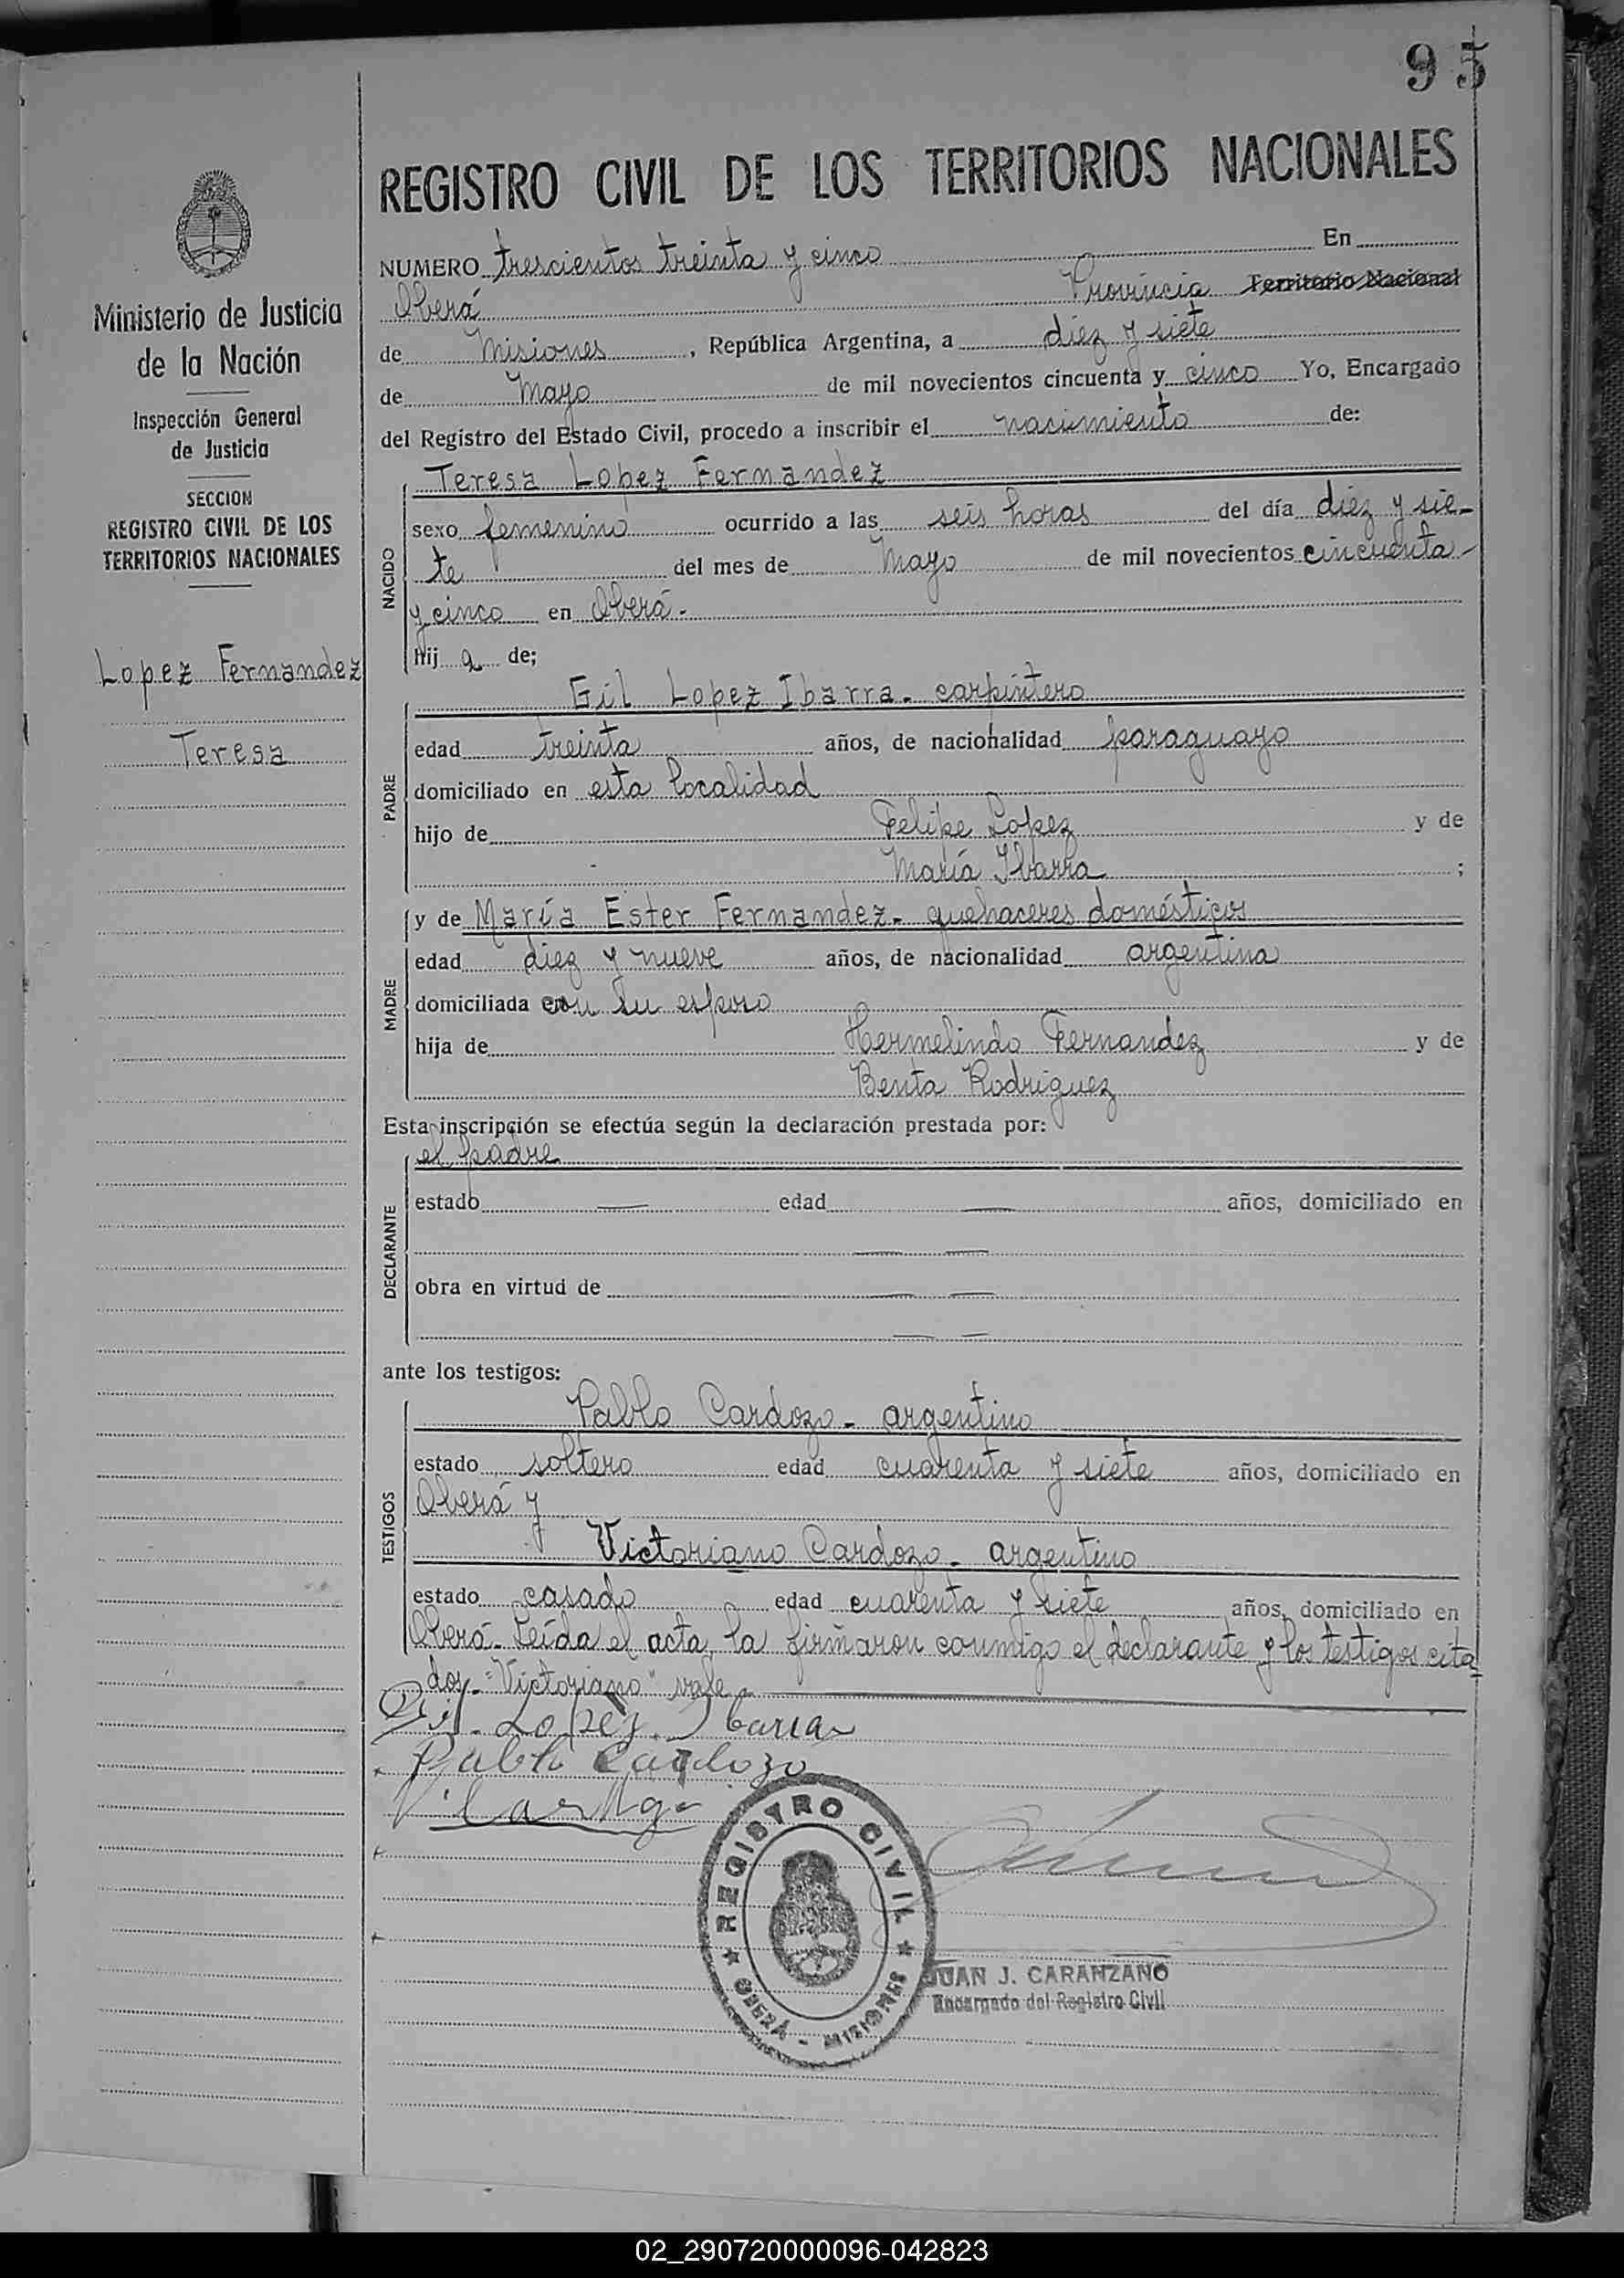 95
REGISTRO CIVIL DE LOS TERRITORIOS NACIONALES
NUMERO trescientos treinta y cinco En
Oberá Provincia Territorio Nacional
de Misiones, República Argentina, a diez y siete
de Mayo de mil novecientos cincuenta y cinco Yo, Encargado
del Registro del Estado Civil, procedo a inscribir el nacimiento de:
Ministerio de Justicia
de la Nación
Inspección General
de Justicia
SECCION
REGISTRO CIVIL DE LOS
TERRITORIOS NACIONALES
Lopez Fernandez
Teresa
NACIDO
Teresa Lopez Fernandez
sexo femenino ocurrido a las seis horas del día diez y sie-
te del mes de Mayo de mil novecientos cincuenta-
y cinco en Oberá-
hij a de;
PADRE
Gil Lopez Ibarra - carpintero
edad treinta años, de nacionalidad paraguayo
domiciliado en esta localidad
hijo de Felipe Lopez y de
María Ibarra ;
MADRE
y de María Ester Fernandez - quehaceres domésticos
edad diez y nueve años, de nacionalidad argentina
domiciliada con su esposo
hija de Hermelindo Fernandez y de
Benta Rodriguez
Esta inscripción se efectúa según la declaración prestada por:
DECLARANTE
el padre
estado — edad — años, domiciliado en
— —
obra en virtud de — —
— —
ante los testigos:
TESTIGOS
Pablo Cardozo - argentino
estado soltero edad cuarenta y siete años, domiciliado en
Oberá y
Victoriano Cardozo - argentino
estado casado edad cuarenta y siete años, domiciliado en
Oberá - Leída el acta, la firmaron conmigo el declarante y los testigos cita-
dos - "Victoriano" vale -
Gil Lopez Ibarra
Pablo Cardozo
REGISTRO CIVIL
OBERÁ - MISIONES
JUAN J. CARANZANO
Encargado del Registro Civil
02_290720000096-042823